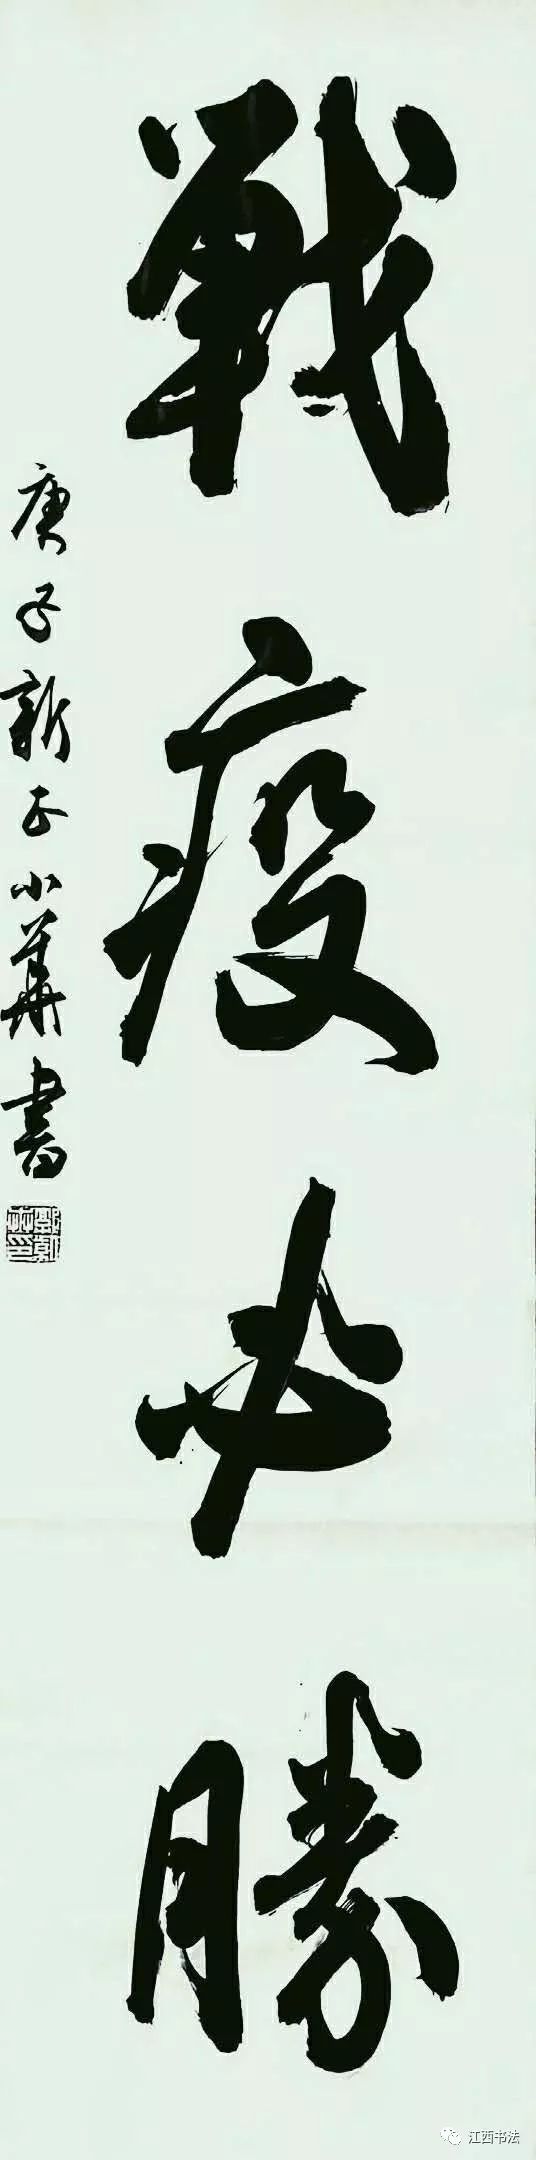 戰疫必勝
庚子新正小華書
江西书法